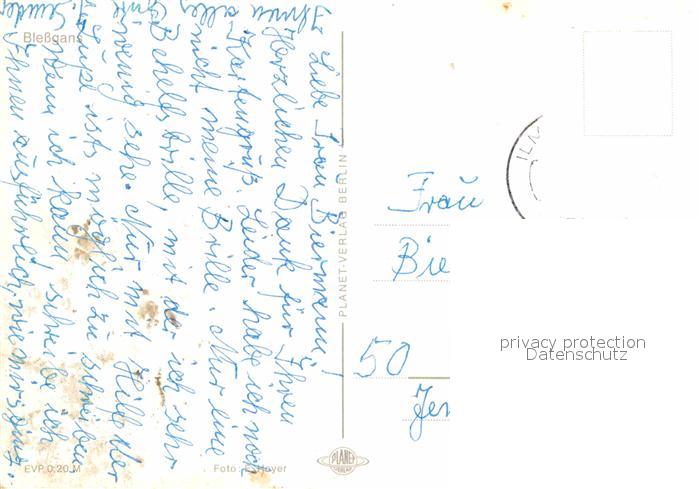 Bleßgans
Liebe Frau Biermann!
Herzlichen Dank für Ihren
Kartengruß. Leider habe ich noch
nicht meine Brille. Nur eine
Behelfsbrille, mit der ich sehr
wenig sehe. Nur mit Hilfe der
Lupe ists möglich zu schreiben
Wenn ich kann schreibe ich
Ihnen ausführlich, wie mirs ging.
Ihnen alles
EVP 0,20 M
Foto: E. Hoyer
PLANET-VERLAG BERLIN
PLANET
VERLAG
Frau
Bie
50
Jen
privacy protection
Datenschutz